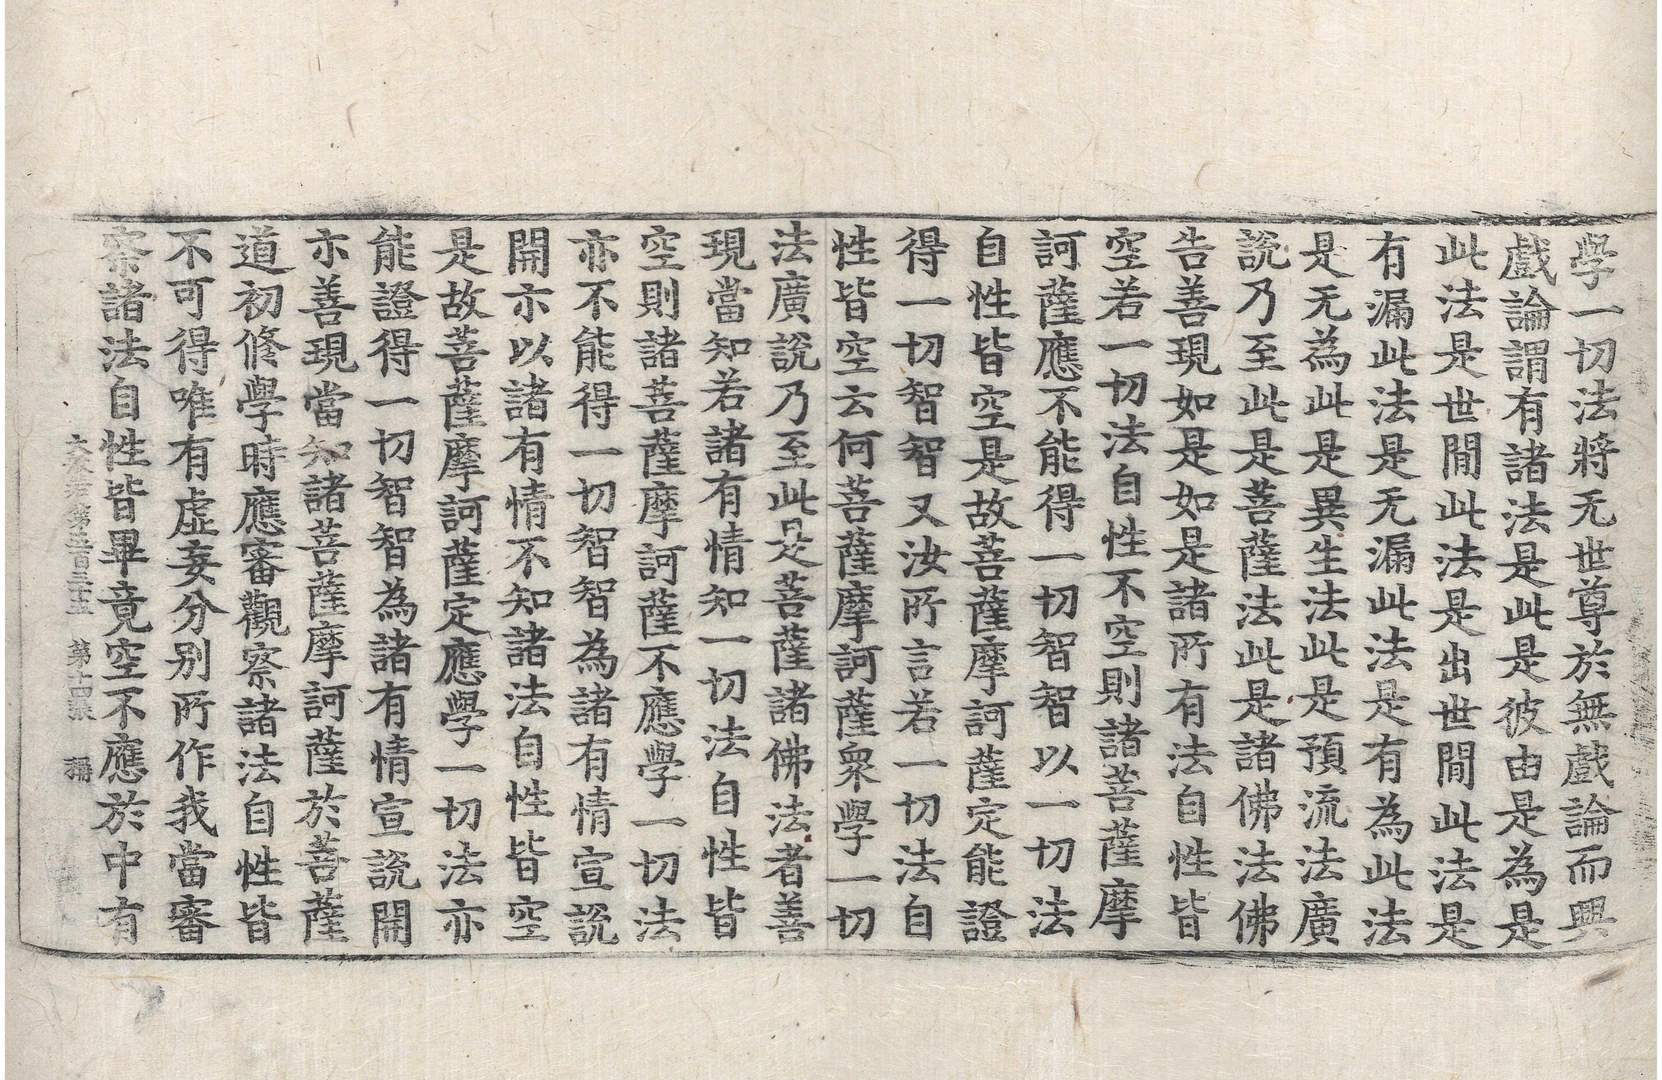 學一切法將无世尊於無戲論而興
戲論謂有諸法是此是彼由是為是
此法是世間此法是出世間此法是
有漏此法是无漏此法是有為此法
是无為此是異生法此是預流法廣
說乃至此是菩薩法此是諸佛法佛
告善現如是如是諸所有法自性皆
空若一切法自性不空則諸菩薩摩
訶薩應不能得一切智智以一切法
自性皆空是故菩薩摩訶薩定能證
得一切智智又汝所言若一切法自
性皆空云何菩薩摩訶薩眾學一切
法廣說乃至此是菩薩諸佛法者善
現當知若諸有情知一切法自性皆
空則諸菩薩摩訶薩不應學一切法
亦不能得一切智智為諸有情宣說
開示以諸有情不知諸法自性皆空
是故菩薩摩訶薩定應學一切法亦
能證得一切智智為諸有情宣說開
示善現當知諸菩薩摩訶薩於菩薩
道初修學時應審觀察諸法自性皆
不可得唯有虛妄分別所作我當審
察諸法自性皆畢竟空不應於中有
大般若第五百三十五 第十四張 稱